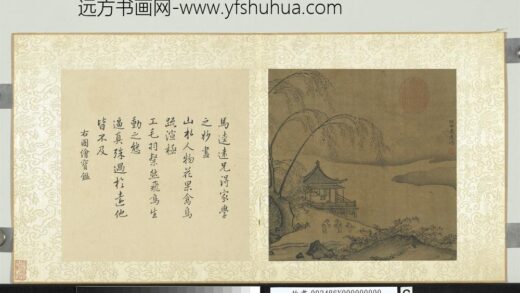 远方书画网-www.yfshuhua.com
馬逵遠兄得家學
之妙畫
山水人物花果禽鳥
疏渲極
工毛羽粲然飛鳴生
動之態
逼真殊過於遠他
皆不及
右圖繪寶鑑